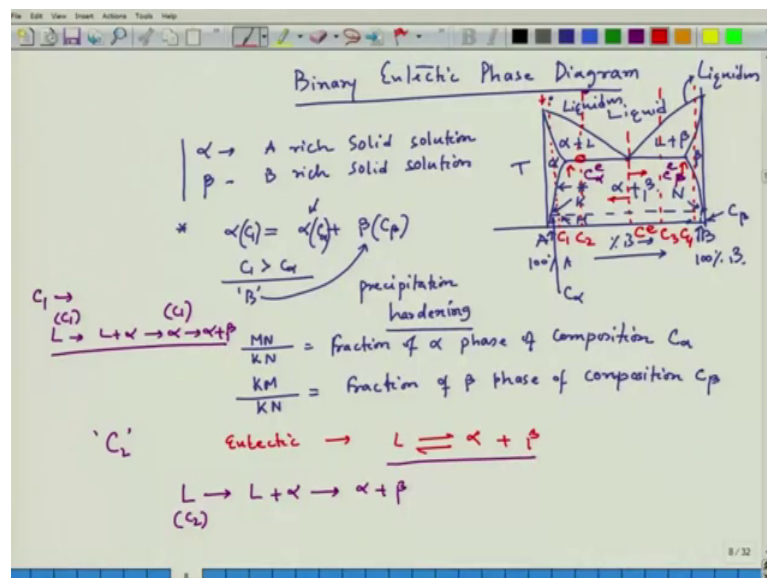 File Edit View Insert Actions Tools Help
Binary Eutectic Phase Diagram
Liquidus
Liquidus
Liquid
α+L
L+β
α
β
T
C_α^e
C_β^e
α+β
K
M
N
C_β
A
C_1 C_2
%B →
C^e
C_3 C_4
B
100% A
100% B
C_α
α → A rich Solid solution
β - B rich Solid solution
* α(C_1) = α(C_α) + β(C_β)
C_1 > C_α
'B'
precipitation
hardening
C_1 →
(C_1) (C_1)
L → L+α → α → α+β
MN/KN = fraction of α phase of composition C_α
KM/KN = fraction of β phase of composition C_β
'C_2' Eutectic → L ⇌ α + β
L → L+α → α+β
(C_2)
8 / 32